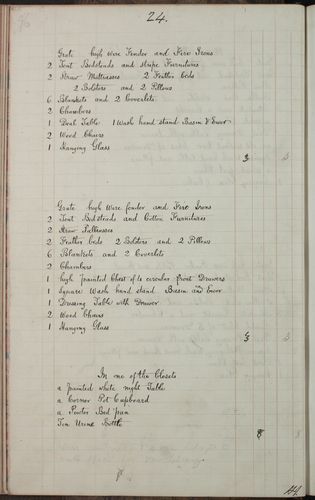 24.
Grate high Wire Fender and Fire Irons
2 Tent Bedsteads and stripe Furnitures
2 Straw Mattrasses 2 Feather beds
2 Bolsters and 2 Pillows
6 Blankets and 2 Coverlets
2 Chambers
1 Deal Table 1 Wash hand stand Basin & Ewer
2 Wood Chairs
1 Hanging Glass
Grate high Wire fender and Fire Irons
2 Tent Bedsteads and Cotton Furnitures
2 Straw Palliasses
2 Feather beds 2 Bolsters and 2 Pillows
6 Blankets and 2 Coverlets
2 Chambers
1 high painted Chest of 6 circular front Drawers
1 Square Wash hand stand Basin and Ewer
1 Dressing Table with Drawer
2 Wood Chairs
1 Hanging Glass
In one of the Closets
a painted white night Table
a Corner Pot Cupboard
a Pewter Bed pan
Tin Urine Bottle